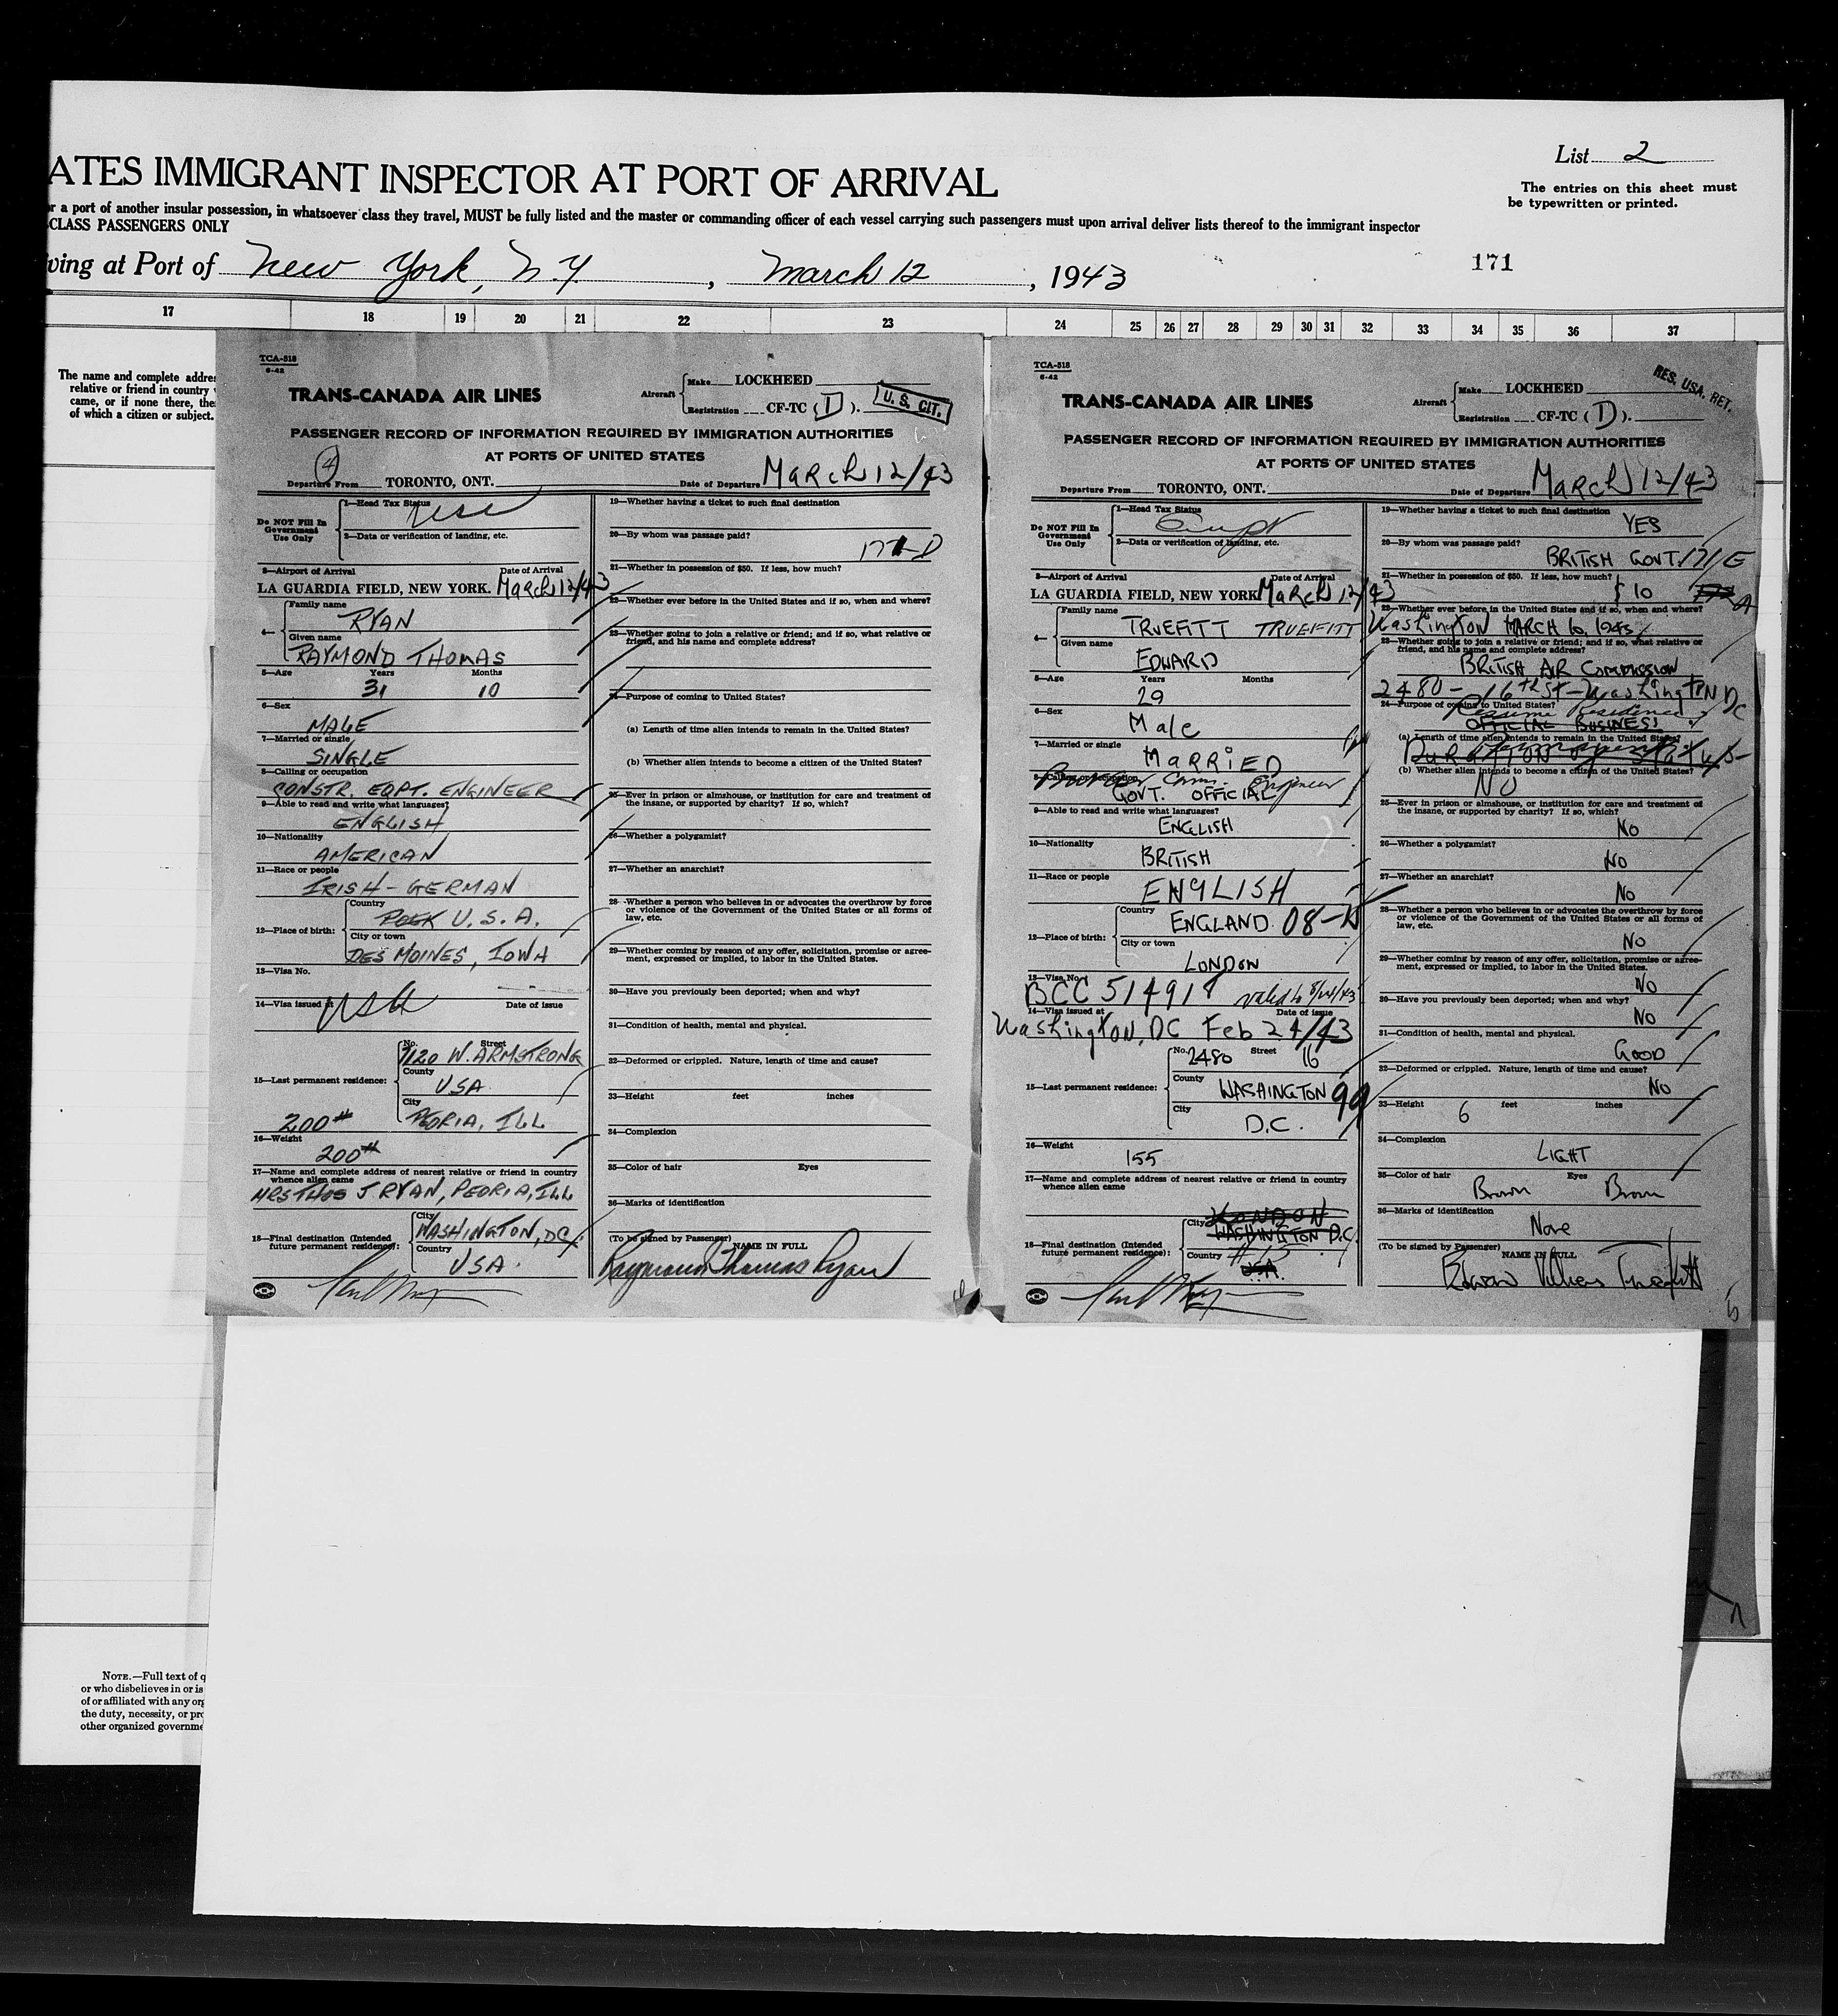 List 2
ATES IMMIGRANT INSPECTOR AT PORT OF ARRIVAL
The entries on this sheet must
be typewritten or printed.
or a port of another insular possession, in whatsoever class they travel, MUST be fully listed and the master or commanding officer of each vessel carrying such passengers must upon arrival deliver lists thereof to the immigrant inspector
CLASS PASSENGERS ONLY
ving at Port of New York, N.Y. , March 12 , 1943
171
17 18 19 20 21 22 23 24 25 26 27 28 29 30 31 32 33 34 35 36 37
The name and complete addre
relative or friend in country
came, or if none there, the
of which a citizen or subject.
TCA-518
6-42
TRANS-CANADA AIR LINES
Aircraft Make LOCKHEED
Registration CF-TC (D).
U. S. CIT.
PASSENGER RECORD OF INFORMATION REQUIRED BY IMMIGRATION AUTHORITIES
AT PORTS OF UNITED STATES
4
Departure From TORONTO, ONT. Date of Departure March 12/43
Do NOT Fill In
Government
Use Only
1—Head Tax Status
2—Data or verification of landing, etc.
3—Airport of Arrival Date of Arrival
LA GUARDIA FIELD, NEW YORK. March 12/43
4— Family name
RYAN
Given name
RAYMOND THOMAS
5—Age Years Months
31 10
6—Sex
MALE
7—Married or single
SINGLE
8—Calling or occupation
CONSTR. EQPT. ENGINEER
9—Able to read and write what languages?
ENGLISH
10—Nationality
AMERICAN
11—Race or people
IRISH-GERMAN
12—Place of birth: Country
U.S.A.
City or town
DES MOINES, IOWA
13—Visa No.
14—Visa issued at Date of issue
USA
15—Last permanent residence: No. Street
1120 W. ARMSTRONG
County
USA
City
PEORIA, ILL
200#
16—Weight
200#
17—Name and complete address of nearest relative or friend in country
whence alien came
MRS THOS J RYAN, PEORIA, ILL
18—Final destination (Intended
future permanent residence):
City
WASHINGTON, DC
Country
USA.
19—Whether having a ticket to such final destination
20—By whom was passage paid?
171-D
21—Whether in possession of $50. If less, how much?
22—Whether ever before in the United States and if so, when and where?
23—Whether going to join a relative or friend; and if so, what relative or
friend, and his name and complete address?
24—Purpose of coming to United States?
(a) Length of time alien intends to remain in the United States?
(b) Whether alien intends to become a citizen of the United States?
25—Ever in prison or almshouse, or institution for care and treatment of
the insane, or supported by charity? If so, which?
26—Whether a polygamist?
27—Whether an anarchist?
28—Whether a person who believes in or advocates the overthrow by force
or violence of the Government of the United States or all forms of
law, etc.
29—Whether coming by reason of any offer, solicitation, promise or agree-
ment, expressed or implied, to labor in the United States.
30—Have you previously been deported; when and why?
31—Condition of health, mental and physical.
32—Deformed or crippled. Nature, length of time and cause?
33—Height feet inches
34—Complexion
35—Color of hair Eyes
36—Marks of identification
(To be signed by Passenger) NAME IN FULL
Raymond Thomas Ryan
TCA-518
6-42
TRANS-CANADA AIR LINES
Aircraft Make LOCKHEED
Registration CF-TC (D).
RES. USA. RET.
PASSENGER RECORD OF INFORMATION REQUIRED BY IMMIGRATION AUTHORITIES
AT PORTS OF UNITED STATES
Departure From TORONTO, ONT. Date of Departure March 12/43
Do NOT Fill In
Government
Use Only
1—Head Tax Status
2—Data or verification of landing, etc.
3—Airport of Arrival Date of Arrival
LA GUARDIA FIELD, NEW YORK March 12/43
4— Family name
TRUEFITT TRUEFITT
Given name
EDWARD
5—Age Years Months
29
6—Sex
Male
7—Married or single
MARRIED
8—Calling or occupation
GOVT. OFFICIAL Engineer
9—Able to read and write what languages?
ENGLISH
10—Nationality
BRITISH
11—Race or people
ENGLISH
12—Place of birth: Country
ENGLAND 08-
City or town
LONDON
13—Visa No.
BCC 514918 valid to 8/24/43
14—Visa issued at Date of issue
Washington, DC Feb 24/43
15—Last permanent residence: No. Street
2480 16
County
WASHINGTON 99
City
D.C.
16—Weight
155
17—Name and complete address of nearest relative or friend in country
whence alien came
18—Final destination (Intended
future permanent residence):
City
LONDON
WASHINGTON D.C.
Country
#15
USA.
19—Whether having a ticket to such final destination
YES
20—By whom was passage paid?
BRITISH GOVT. 171/E
21—Whether in possession of $50. If less, how much?
$10
22—Whether ever before in the United States and if so, when and where?
Washington MARCH 6, 1943
23—Whether going to join a relative or friend; and if so, what relative or
friend, and his name and complete address?
BRITISH AIR COMMISSION
2480 - 16th St - Washington DC
24—Purpose of coming to United States?
Resume Residence
OFFICIAL BUSINESS
(a) Length of time alien intends to remain in the United States?
DURATION of Status
(b) Whether alien intends to become a citizen of the United States?
NO
25—Ever in prison or almshouse, or institution for care and treatment of
the insane, or supported by charity? If so, which?
No
26—Whether a polygamist?
No
27—Whether an anarchist?
No
28—Whether a person who believes in or advocates the overthrow by force
or violence of the Government of the United States or all forms of
law, etc.
No
29—Whether coming by reason of any offer, solicitation, promise or agree-
ment, expressed or implied, to labor in the United States.
No
30—Have you previously been deported; when and why?
No
31—Condition of health, mental and physical.
GOOD
32—Deformed or crippled. Nature, length of time and cause?
No
33—Height feet inches
6
34—Complexion
LIGHT
35—Color of hair Eyes
Brown Brown
36—Marks of identification
None
(To be signed by Passenger) NAME IN FULL
Edward Truefitt
NOTE.—Full text of q
or who disbelieves in or is
of or affiliated with any org
the duty, necessity, or pro
other organized governme